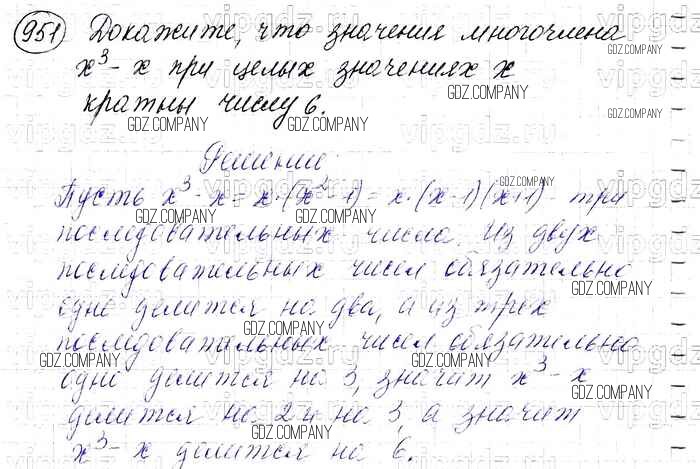 951 Докажите, что значения многочлена
x³ - x при целых значениях x
кратны числу 6.
Решение
Пусть x³ - x = x·(x² - 1) = x·(x-1)(x+1) - три
последовательных числа. Из двух
последовательных чисел обязательно
одно делится на два, а из трех
последовательных чисел обязательно
одно делится на 3, значит x³ - x
делится на 2 и на 3, а значит
x³ - x делится на 6.
GDZ.COMPANY
GDZ.COMPANY
GDZ.COMPANY
GDZ.COMPANY
GDZ.COMPANY
GDZ.COMPANY
GDZ.COMPANY
GDZ.COMPANY
GDZ.COMPANY
GDZ.COMPANY
GDZ.COMPANY
GDZ.COMPANY
GDZ.COMPANY
GDZ.COMPANY
vipgdz.ru